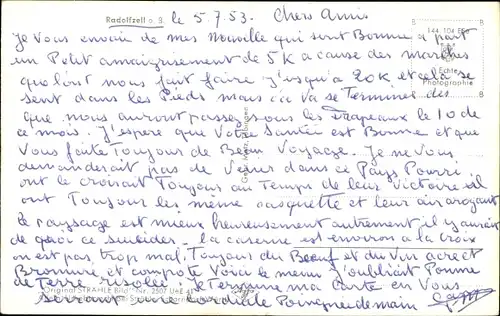 Radolfzell a. B. le 5.7.53. Chers Amis
Je vous envoie de mes nouvelle qui sont Bonne a part
un Petit amaigrissement de 5K a cause des marches
que l'ont nous fait faire j'usqu'a 20K et cela se
sent dans les Pieds mais ça va se Terminer des
que nous auront passez sous les Drapeaux le 10 de
ce mois. J'espère que votre Santée est Bonne et que
vous faite Toujours de Beau Voyage. Je ne vous
demanderait pas de venir dans ce Pays Pourri
ont le croirait Toujours au Temps de leur Victoire il
ont Toujours les même casquette et leur air arogant
Le Paysage est mieux heureusement autrement il y aurait
de quoi ce suicider. La caserne est environ a la croix
on est pas trop mal. Toujours du Boeuf et du Vin acre et
Bromure, et compote Voici le menu j'oubliait Pomme
de Terre rissolée. Je Termine ma Carte en Vous
serrant une cordiale Poignée de main
144 104 E60
Echte
Photographie
Original STRÄHLE Bild Nr. 2507